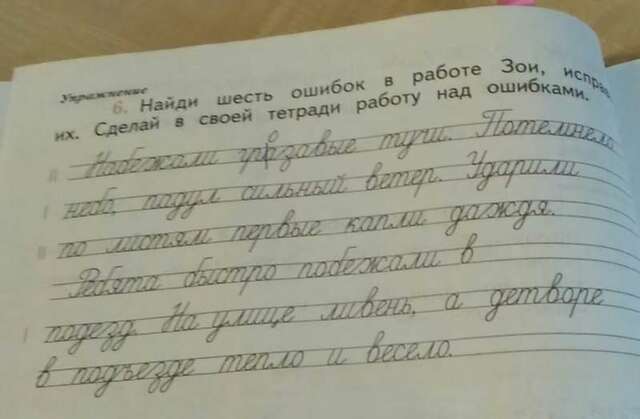 Упражнение
6. Найди шесть ошибок в работе Зои, исправ
их. Сделай в своей тетради работу над ошибками.
Набежали гразавые тучи. Потемнело
небо, падул сильный ветер. Ударили
по листям первые капли даждя.
Ребята быстро побежали в
подезд. На улице ливень, а детворе
в подъезде тепло и весело.